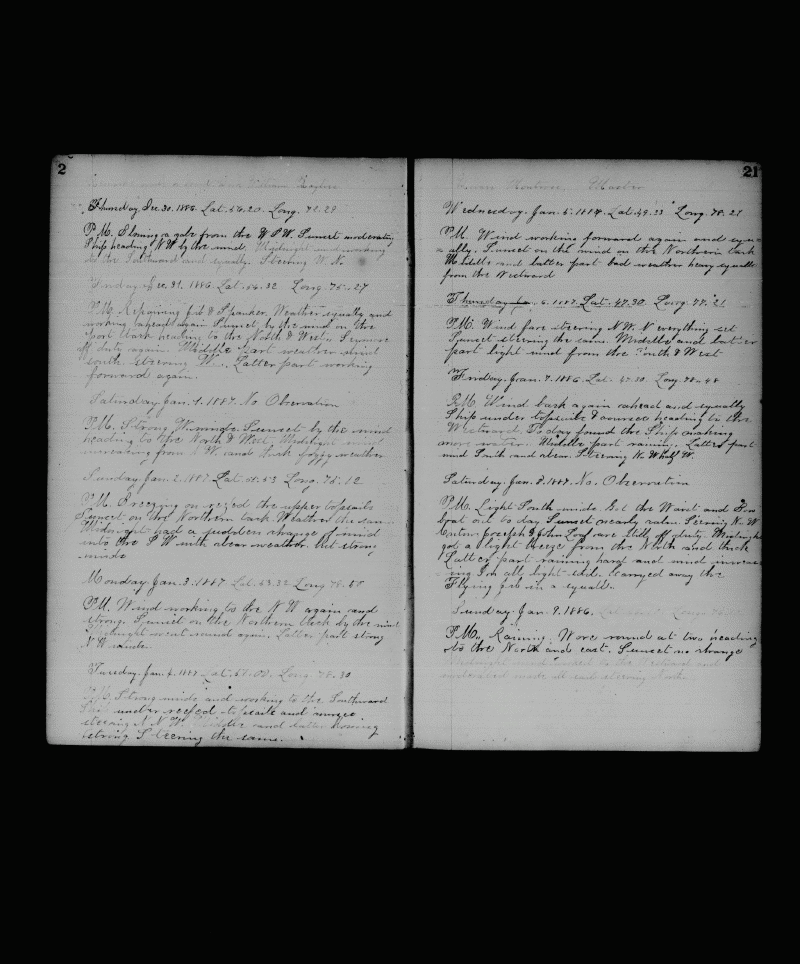 2
Thursday Dec 30. 1886. Lat. 56.20. Long. 72.29
P.M. Blowing a gale from the W.S.W. Sunset moderating
Ship heading N.W. by the wind. Midnight wind working
to the Southward and squally. Steering W.N.
Friday Dec. 31. 1886. Lat. 56.32 Long. 75.27
P.M. Repairing jib & Spanker. Weather squally and
working ahead again Sunset by the wind on the
port tack heading to the North & West. Seymore
off duty again. Middle part weather wind
South Steering W. Latter part working
forward again.
Saturday Jan. 1. 1887. No Observation
P.M. Strong W. winds. Sunset by the wind
heading to the North & West. Midnight wind
from N W and thick foggy weather
Sunday Jan. 2. 1887 Lat. Long. 76.12
P.M. Breezing on reefed the upper topsails
Sunset on the Northern tack. Weather the same.
Midnight had a sudden change of wind
into the S W with clear weather but strong
winds
Monday Jan. 3. 1887. Lat. 53.32 Long 78.50
P.M. Wind working to the N W again and
strong. Sunset on the Northern tack by the wind
Midnight went round again. Latter part strong
N W winds.
Tuesday. Jan. 4. 1887 Lat. 51.00. Long. 78.30
P.M. Strong winds and working to the Southward
Ship under reefed topsails and
steering N.N.W. Middle and latter blowing
strong Steering the same.
21
Master
Wednesday. Jan. 5. 1887. Lat. 49.33 Long. 78.21
P.M. Wind working forward again and squ-
ally. Sunset on the wind on the Northern tack
Middle and latter part bad weather heavy squalls
from the Westward
Thursday Jan. 6. 1887. Lat. 47.30. Long. 77.21
P.M. Wind fare steering N.W. N everything set
Sunset steering the same. Middle and latter
part light wind from the South & West
Friday. Jan. 7. 1886. Lat. 47.30. Long. 78.48
P.M. Wind back again ahead and squally
Ship under topsails & courses heading to the
Westward. To day found the Ship making
more water. Middle part raining. Latter part
wind South and clear. Steering N. W half W.
Saturday Jan. 8. 1887. No. Observation
P.M. Light South winds. Got the Waist and Bow
boat out to day Sunset nearly calm. Steering N.W
Antone Joseph & John Loy are still off duty. Midnight
got a light breeze from the North and thick
Latter part raining hard and wind increas
ing In all light sail. Carryed away the
Flying jib in a squall.
Sunday. Jan. 9. 1886.
P.M. Raining. Wore round at two heading
to the North and east. Sunset no change
Midnight wind worked to the Westward and
moderated made all sail steering North.